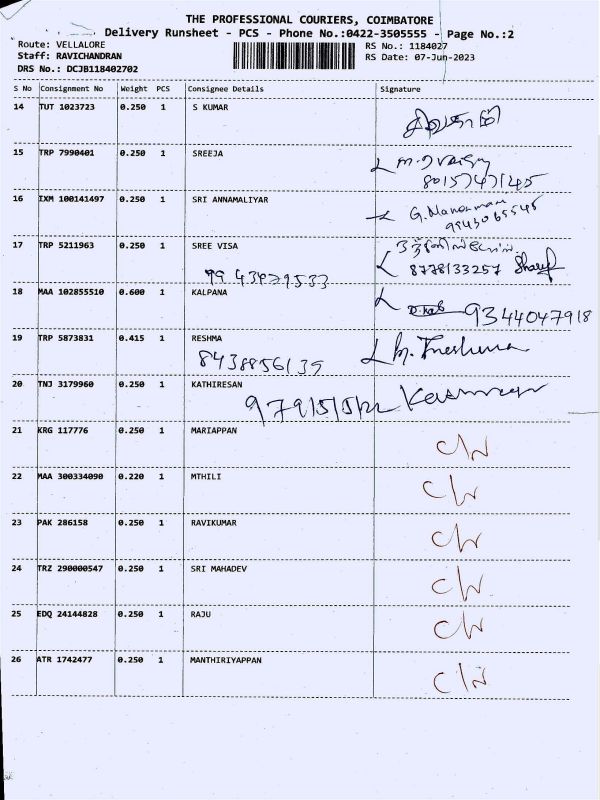 THE PROFESSIONAL COURIERS, COIMBATORE
Delivery Runsheet - PCS - Phone No.:0422-3505555 - Page No.:2
Route: VELLALORE RS No.: 1184027
Staff: RAVICHANDRAN RS Date: 07-Jun-2023
DRS No.: DCJB118402702
S No Consignment No Weight PCS Consignee Details Signature
14 TUT 1023723 0.250 1 S KUMAR
15 TRP 7990401 0.250 1 SREEJA
8015747145
16 IXM 100141497 0.250 1 SRI ANNAMALIYAR
9943065546
17 TRP 5211963 0.250 1 SREE VISA
9943929533 8778133257
18 MAA 102855510 0.600 1 KALPANA
9344047918
19 TRP 5873831 0.415 1 RESHMA
8438856139
20 TNJ 3179960 0.250 1 KATHIRESAN
21 KRG 117776 0.250 1 MARIAPPAN C/W
22 MAA 300334090 0.220 1 MTHILI C/W
23 PAK 286158 0.250 1 RAVIKUMAR C/W
24 TRZ 290000547 0.250 1 SRI MAHADEV C/W
25 EDQ 24144828 0.250 1 RAJU C/W
26 ATR 1742477 0.250 1 MANTHIRIYAPPAN C/W